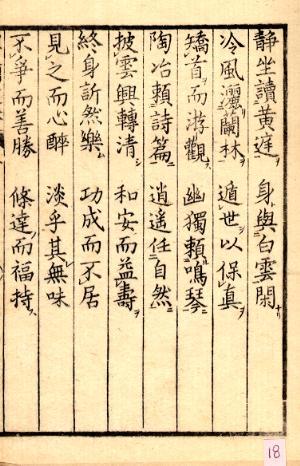 静坐讀黄遅 身與白雲閑
冷風灑蘭林 遁世以保真
矯首而游觀 幽獨頼鳴琴
陶冶頼詩篇 逍遥任自然
披雲興轉清 和安而益壽
終身訢然樂 功成而不居
見之而心醉 淡乎其無味
不爭而善勝 條達而福持
18